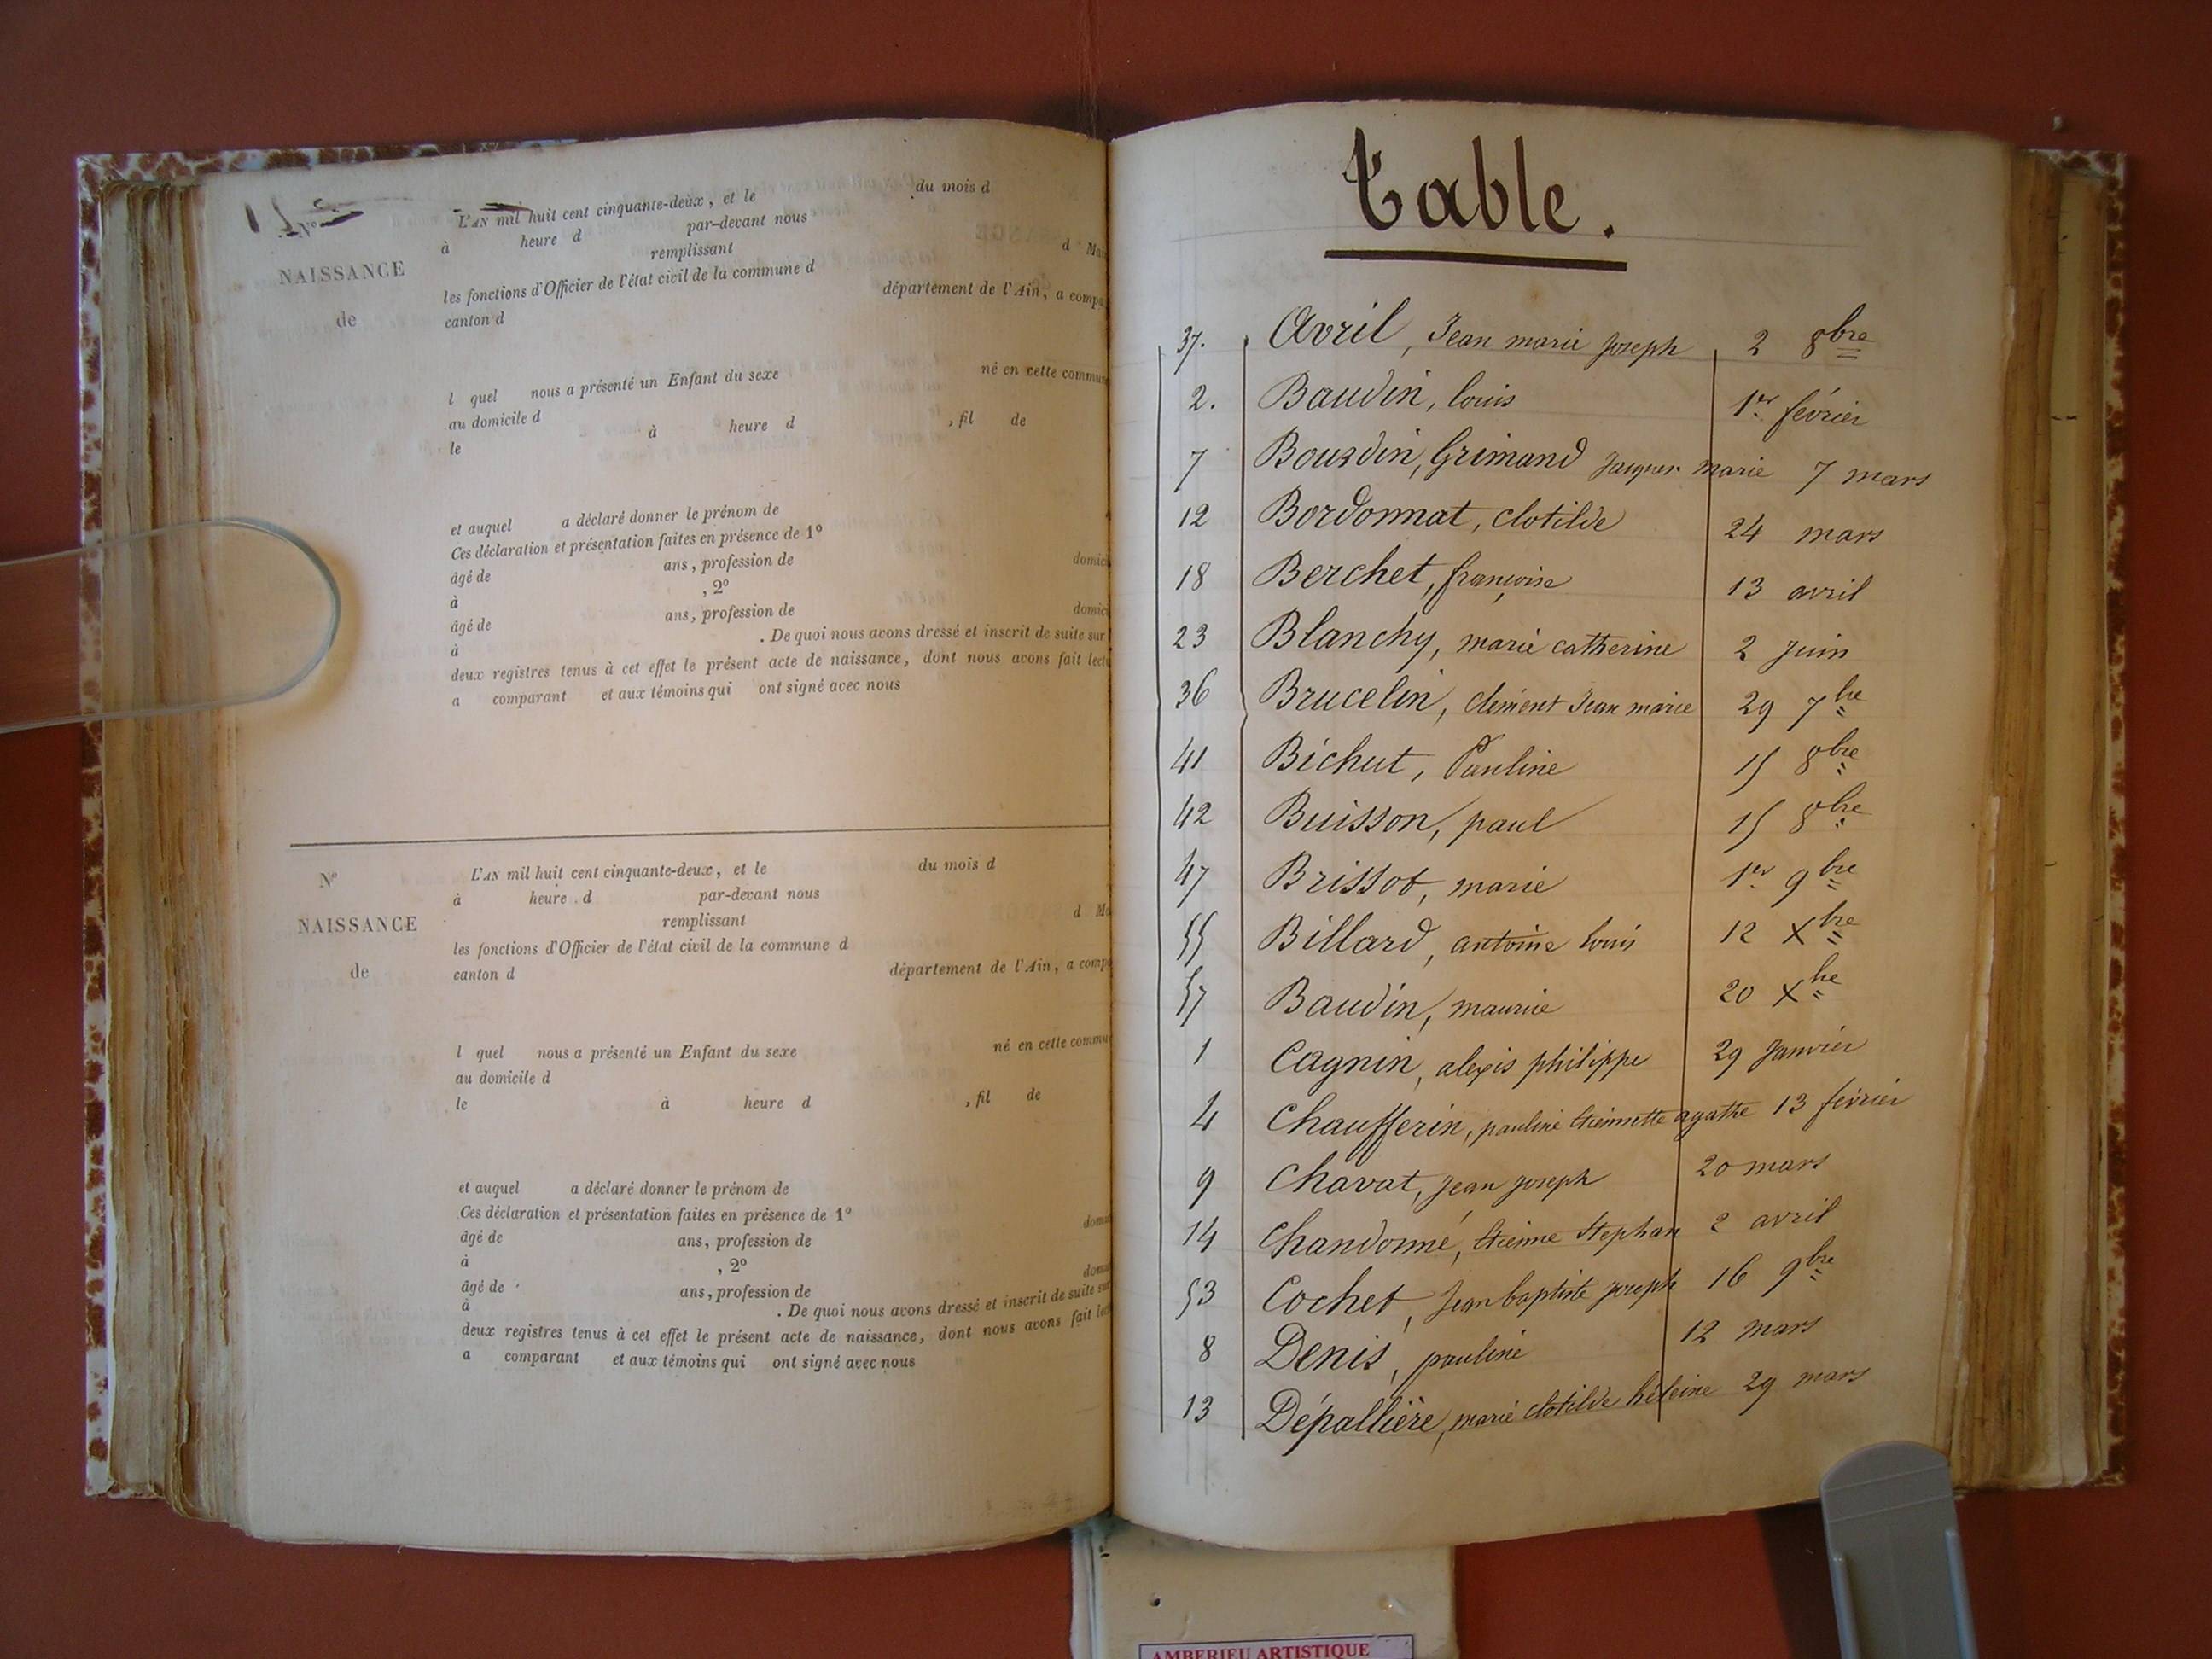 N°
L'AN mil huit cent cinquante-deux, et le du mois d
à heure d par-devant nous
remplissant d Mai
NAISSANCE
les fonctions d'Officier de l'état civil de la commune d
de
canton d département de l'Ain, a compa
l quel nous a présenté un Enfant du sexe né en cette commun
au domicile d
le à heure d , fil de
et auquel a déclaré donner le prénom de
Ces déclaration et présentation faites en présence de 1°
âgé de ans, profession de domici
à , 2°
âgé de ans, profession de domici
à . De quoi nous avons dressé et inscrit de suite sur
deux registres tenus à cet effet le présent acte de naissance, dont nous avons fait lectu
a comparant et aux témoins qui ont signé avec nous
N°
L'AN mil huit cent cinquante-deux, et le du mois d
à heure d par-devant nous
remplissant d Ma
NAISSANCE
les fonctions d'Officier de l'état civil de la commune d
de
canton d département de l'Ain, a compa
l quel nous a présenté un Enfant du sexe né en cette commu
au domicile d
le à heure d , fil de
et auquel a déclaré donner le prénom de
Ces déclaration et présentation faites en présence de 1°
âgé de ans, profession de domi
à , 2°
âgé de ans, profession de domi
à . De quoi nous avons dressé et inscrit de suite sur
deux registres tenus à cet effet le présent acte de naissance, dont nous avons fait lect
a comparant et aux témoins qui ont signé avec nous
Table.
37. Avril, Jean marie Joseph 2 8bre
2. Baudin, louis 1er février
7 Bourdin, Grimand Jacques marie 7 mars
12 Bordonnat, clotilde 24 mars
18 Berchet, françoise 13 avril
23 Blanchy, marie catherine 2 Juin
36 Brucelin, clément Jean marie 29 7bre
41 Bichut, Pauline 15 8bre
42 Buisson, paul 15 8bre
47 Brissot, marie 1er 9bre
55 Billard, antoine louis 12 Xbre
57 Baudin, maurice 20 Xbre
1 Cagnin, alexis philippe 29 Janvier
4 Chaufferin, pauline Etiennette agathe 13 février
9 Chavat, Jean Joseph 20 mars
14 Chandonné, Etienne Stephan 2 avril
53 Cochet, Jean baptiste Joseph 16 9bre
8 Denis, pauline 12 mars
13 Dépallière, marie clotilde héleine 29 mars
AMBERIEU ARTISTIQUE